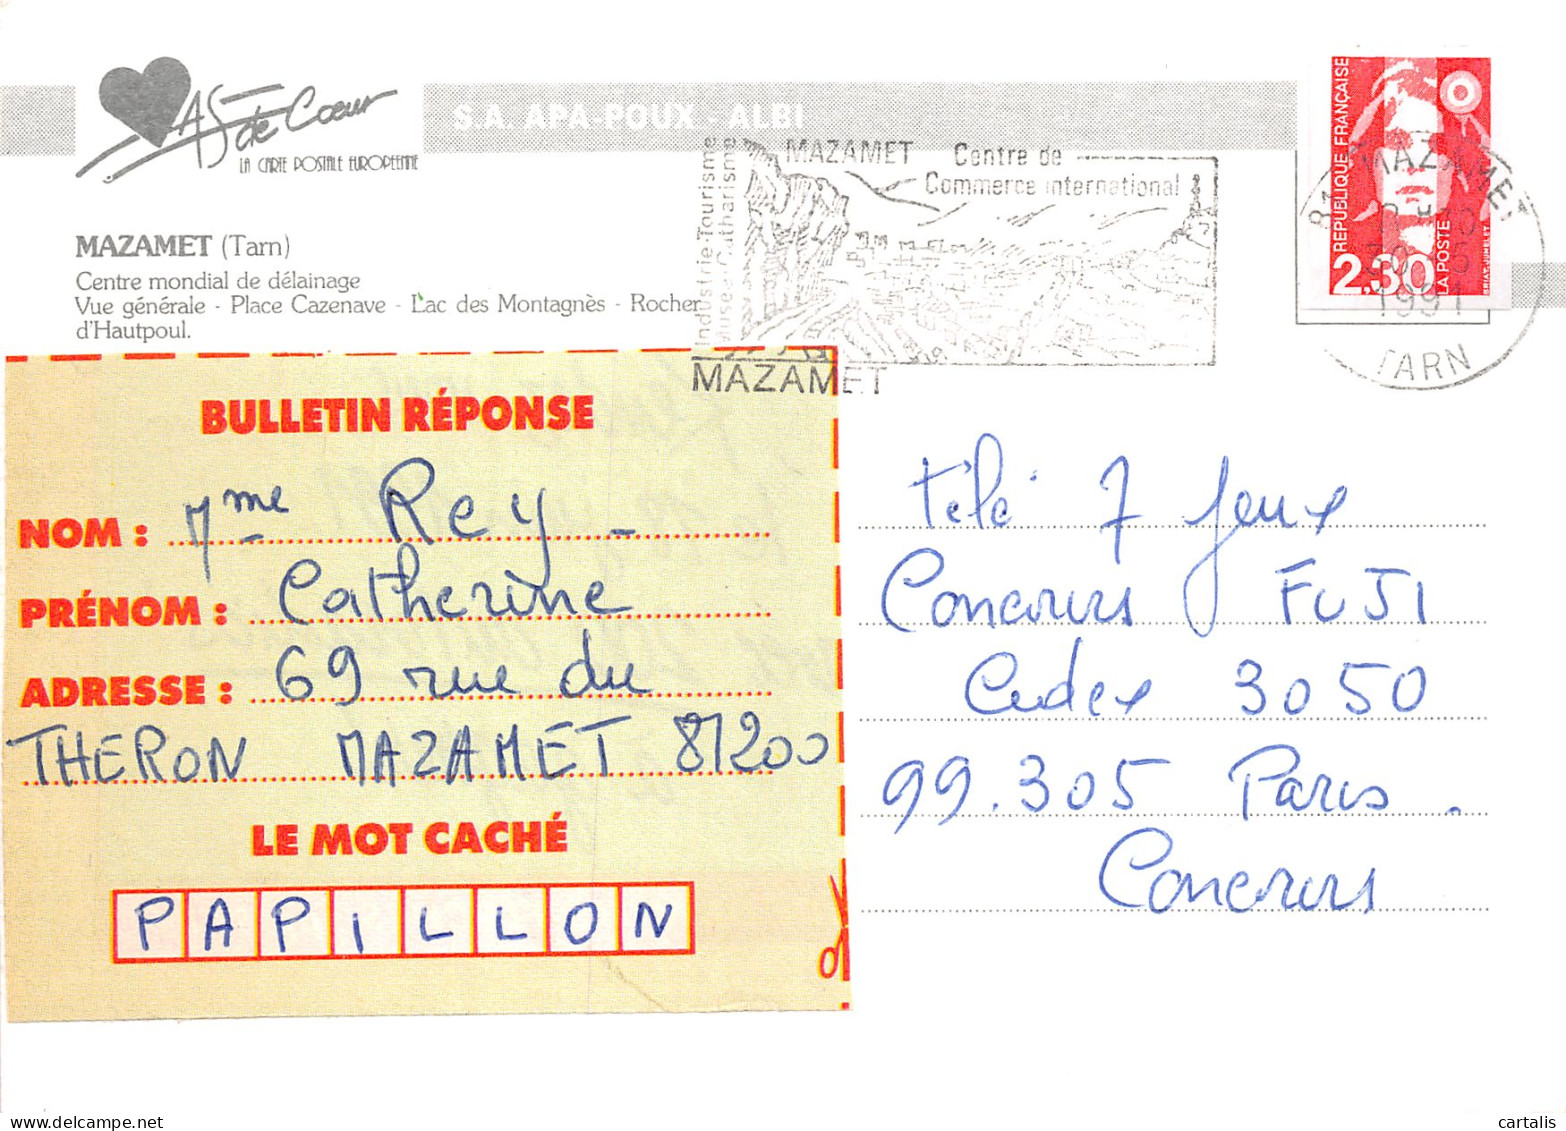 AS de Coeur
LA CARTE POSTALE EUROPEENNE
S.A. APA-POUX - ALBI
MAZAMET (Tarn)
Centre mondial de délainage
Vue générale - Place Cazenave - Lac des Montagnès - Rocher
d'Hautpoul.
Industrie-Tourisme
Musée Catharisme
MAZAMET Centre de
Commerce international
MAZAMET
RÉPUBLIQUE FRANÇAISE
2,30
LA POSTE
BRIAT-JUMELET
81 MAZAMET
1991
TARN
BULLETIN RÉPONSE
NOM : Mme Rey
PRÉNOM : Catherine
ADRESSE : 69 rue du
THERON MAZAMET 81200
LE MOT CACHÉ
PAPILLON
télé 7 Jeux
Concours FUJI
Cedex 3050
99.305 Paris.
Concours
cartalis